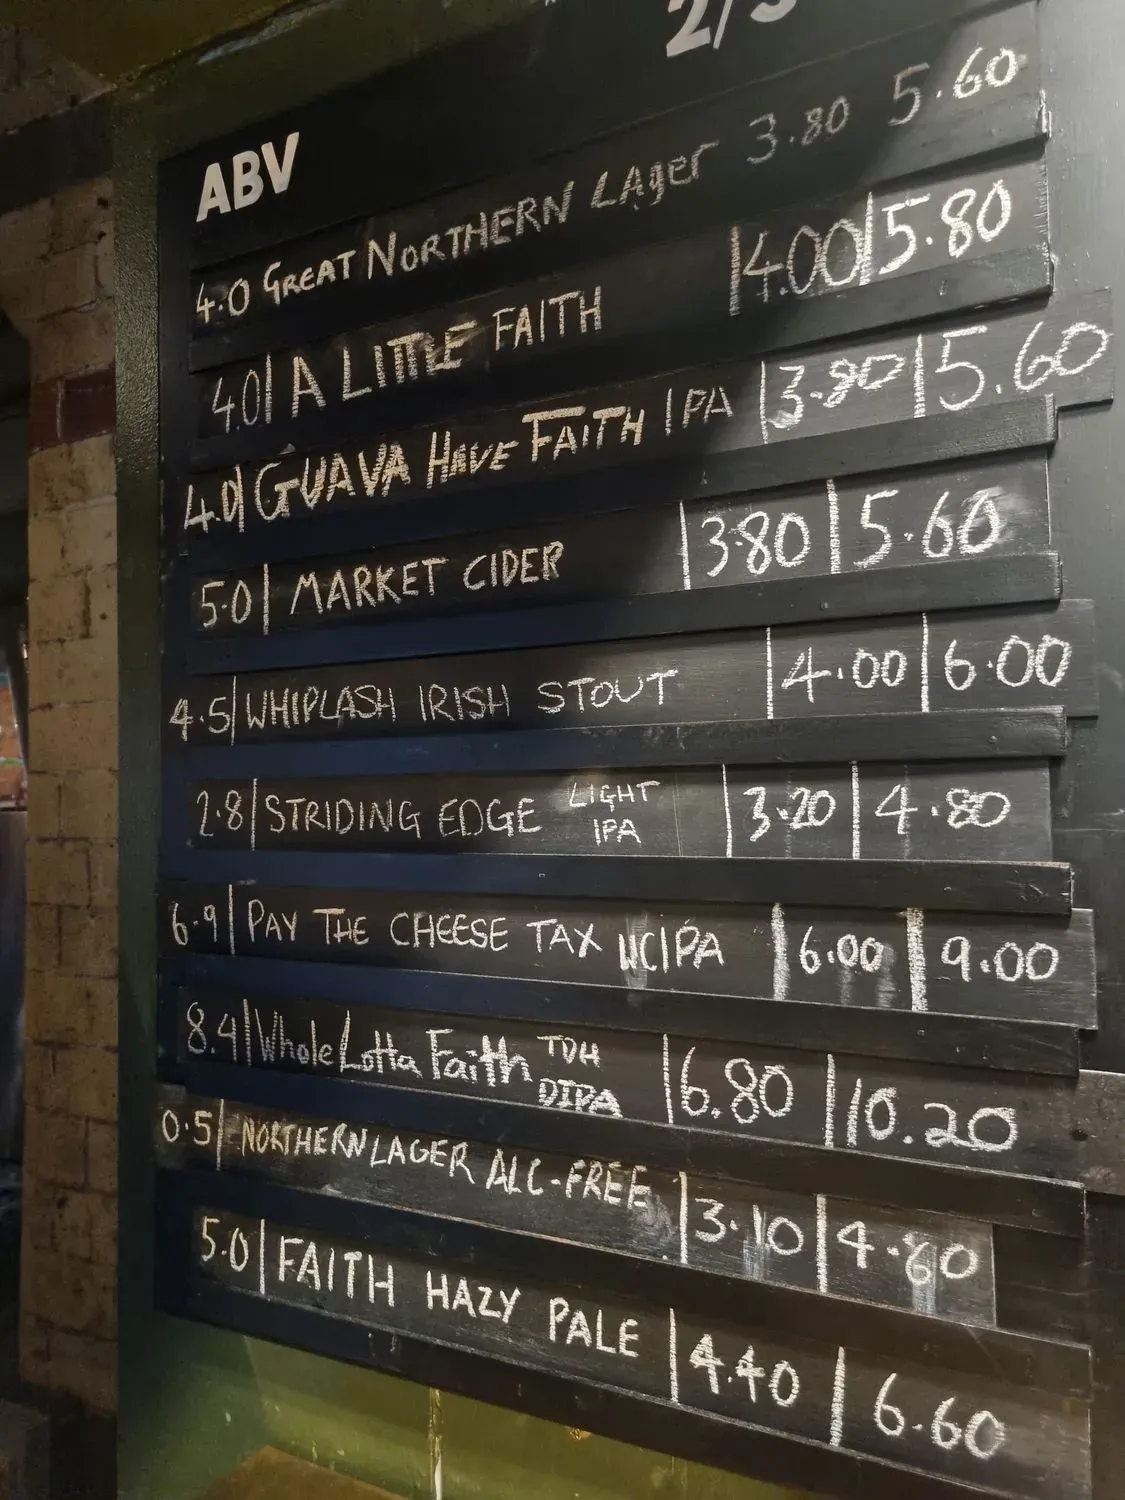 2/3
ABV
4.0 GREAT NORTHERN LAger 3.80 5.60
4.0| A LITTLE FAITH |4.00|5.80
4.0| GUAVA HAVE FAITH IPA |3.80|5.60
5.0| MARKET CIDER |3.80|5.60
4.5| WHIPLASH IRISH STOUT |4.00|6.00
2.8| STRIDING EDGE LIGHT IPA |3.20|4.80
6.9| PAY THE CHEESE TAX WCIPA |6.00|9.00
8.4| Whole Lotta Faith TDH DIPA |6.80|10.20
0.5| NORTHERN LAGER ALC-FREE |3.10|4.60
5.0| FAITH HAZY PALE |4.40|6.60